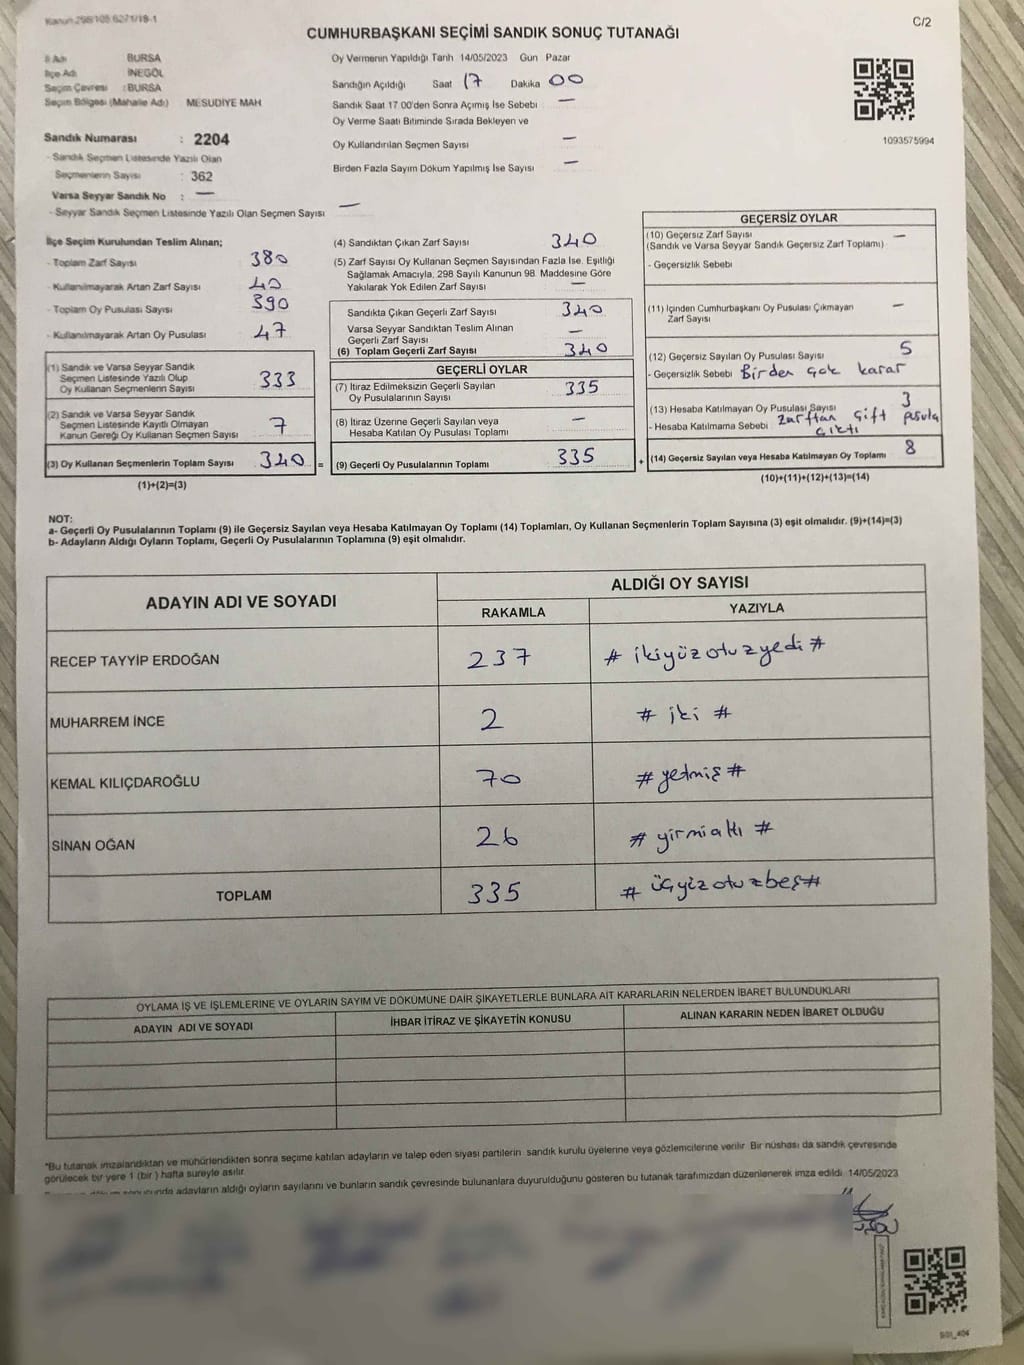 Kanun 298/105 6271/18-1
C/2
CUMHURBAŞKANI SEÇİMİ SANDIK SONUÇ TUTANAĞI
İl Adı BURSA
İlçe Adı İNEGÖL
Seçim Çevresi : BURSA
Seçim Bölgesi (Mahalle Adı) MESUDİYE MAH
Sandık Numarası : 2204
- Sandık Seçmen Listesinde Yazılı Olan
Seçmenlerin Sayısı : 362
Varsa Seyyar Sandık No : —
- Seyyar Sandık Seçmen Listesinde Yazılı Olan Seçmen Sayısı —
Oy Vermenin Yapıldığı Tarih 14/05/2023 Gün Pazar
Sandığın Açıldığı Saat 17 Dakika 00
Sandık Saat 17.00'den Sonra Açımış İse Sebebi —
Oy Verme Saati Bitiminde Sırada Bekleyen ve
Oy Kullandırılan Seçmen Sayısı —
Birden Fazla Sayım Döküm Yapılmış İse Sayısı —
1093575994
İlçe Seçim Kurulundan Teslim Alınan;
- Toplam Zarf Sayısı 380
- Kullanılmayarak Artan Zarf Sayısı 40
- Toplam Oy Pusulası Sayısı 390
- Kullanılmayarak Artan Oy Pusulası 47
(1) Sandık ve Varsa Seyyar Sandık
Seçmen Listesinde Yazılı Olup
Oy Kullanan Seçmenlerin Sayısı 333
(2) Sandık ve Varsa Seyyar Sandık
Seçmen Listesinde Kayıtlı Olmayan
Kanun Gereği Oy Kullanan Seçmen Sayısı 7
(3) Oy Kullanan Seçmenlerin Toplam Sayısı 340 =
(1)+(2)=(3)
(4) Sandıktan Çıkan Zarf Sayısı 340
(5) Zarf Sayısı Oy Kullanan Seçmen Sayısından Fazla İse, Eşitliği
Sağlamak Amacıyla, 298 Sayılı Kanunun 98. Maddesine Göre
Yakılarak Yok Edilen Zarf Sayısı —
Sandıkta Çıkan Geçerli Zarf Sayısı 340
Varsa Seyyar Sandıktan Teslim Alınan
Geçerli Zarf Sayısı —
(6) Toplam Geçerli Zarf Sayısı 340
GEÇERLİ OYLAR
(7) İtiraz Edilmeksizin Geçerli Sayılan
Oy Pusulalarının Sayısı 335
(8) İtiraz Üzerine Geçerli Sayılan veya
Hesaba Katılan Oy Pusulası Toplamı —
(9) Geçerli Oy Pusulalarının Toplamı 335 +
GEÇERSİZ OYLAR
(10) Geçersiz Zarf Sayısı —
(Sandık ve Varsa Seyyar Sandık Geçersiz Zarf Toplamı)
- Geçersizlik Sebebi
(11) İçinden Cumhurbaşkanı Oy Pusulası Çıkmayan
Zarf Sayısı —
(12) Geçersiz Sayılan Oy Pusulası Sayısı 5
- Geçersizlik Sebebi Birden çok karar
(13) Hesaba Katılmayan Oy Pusulası Sayısı 3
- Hesaba Katılmama Sebebi zarftan çift pusula
çıktı
(14) Geçersiz Sayılan veya Hesaba Katılmayan Oy Toplamı 8
(10)+(11)+(12)+(13)=(14)
NOT:
a- Geçerli Oy Pusulalarının Toplamı (9) ile Geçersiz Sayılan veya Hesaba Katılmayan Oy Toplamı (14) Toplamları, Oy Kullanan Seçmenlerin Toplam Sayısına (3) eşit olmalıdır. (9)+(14)=(3)
b- Adayların Aldığı Oyların Toplamı, Geçerli Oy Pusulalarının Toplamına (9) eşit olmalıdır.
ADAYIN ADI VE SOYADI ALDIĞI OY SAYISI
RAKAMLA YAZIYLA
RECEP TAYYİP ERDOĞAN 237 # ikiyüzotuzyedi #
MUHARREM İNCE 2 # iki #
KEMAL KILIÇDAROĞLU 70 # yetmiş #
SİNAN OĞAN 26 # yirmialtı #
TOPLAM 335 # üçyüzotuzbeş #
OYLAMA İŞ VE İŞLEMLERİNE VE OYLARIN SAYIM VE DÖKÜMÜNE DAİR ŞİKAYETLERLE BUNLARA AİT KARARLARIN NELERDEN İBARET BULUNDUKLARI
ADAYIN ADI VE SOYADI İHBAR İTİRAZ VE ŞİKAYETİN KONUSU ALINAN KARARIN NEDEN İBARET OLDUĞU
*Bu tutanak imzalandıktan ve mühürlendikten sonra seçime katılan adayların ve talep eden siyasi partilerin sandık kurulu üyelerine veya gözlemcilerine verilir Bir nüshası da sandık çevresinde
görülecek bir yere 1 (bir ) hafta süreyle asılır.
adayların aldığı oyların sayılarını ve bunların sandık çevresinde bulunanlara duyurulduğunu gösteren bu tutanak tarafımızdan düzenlenerek imza edildi. 14/05/2023